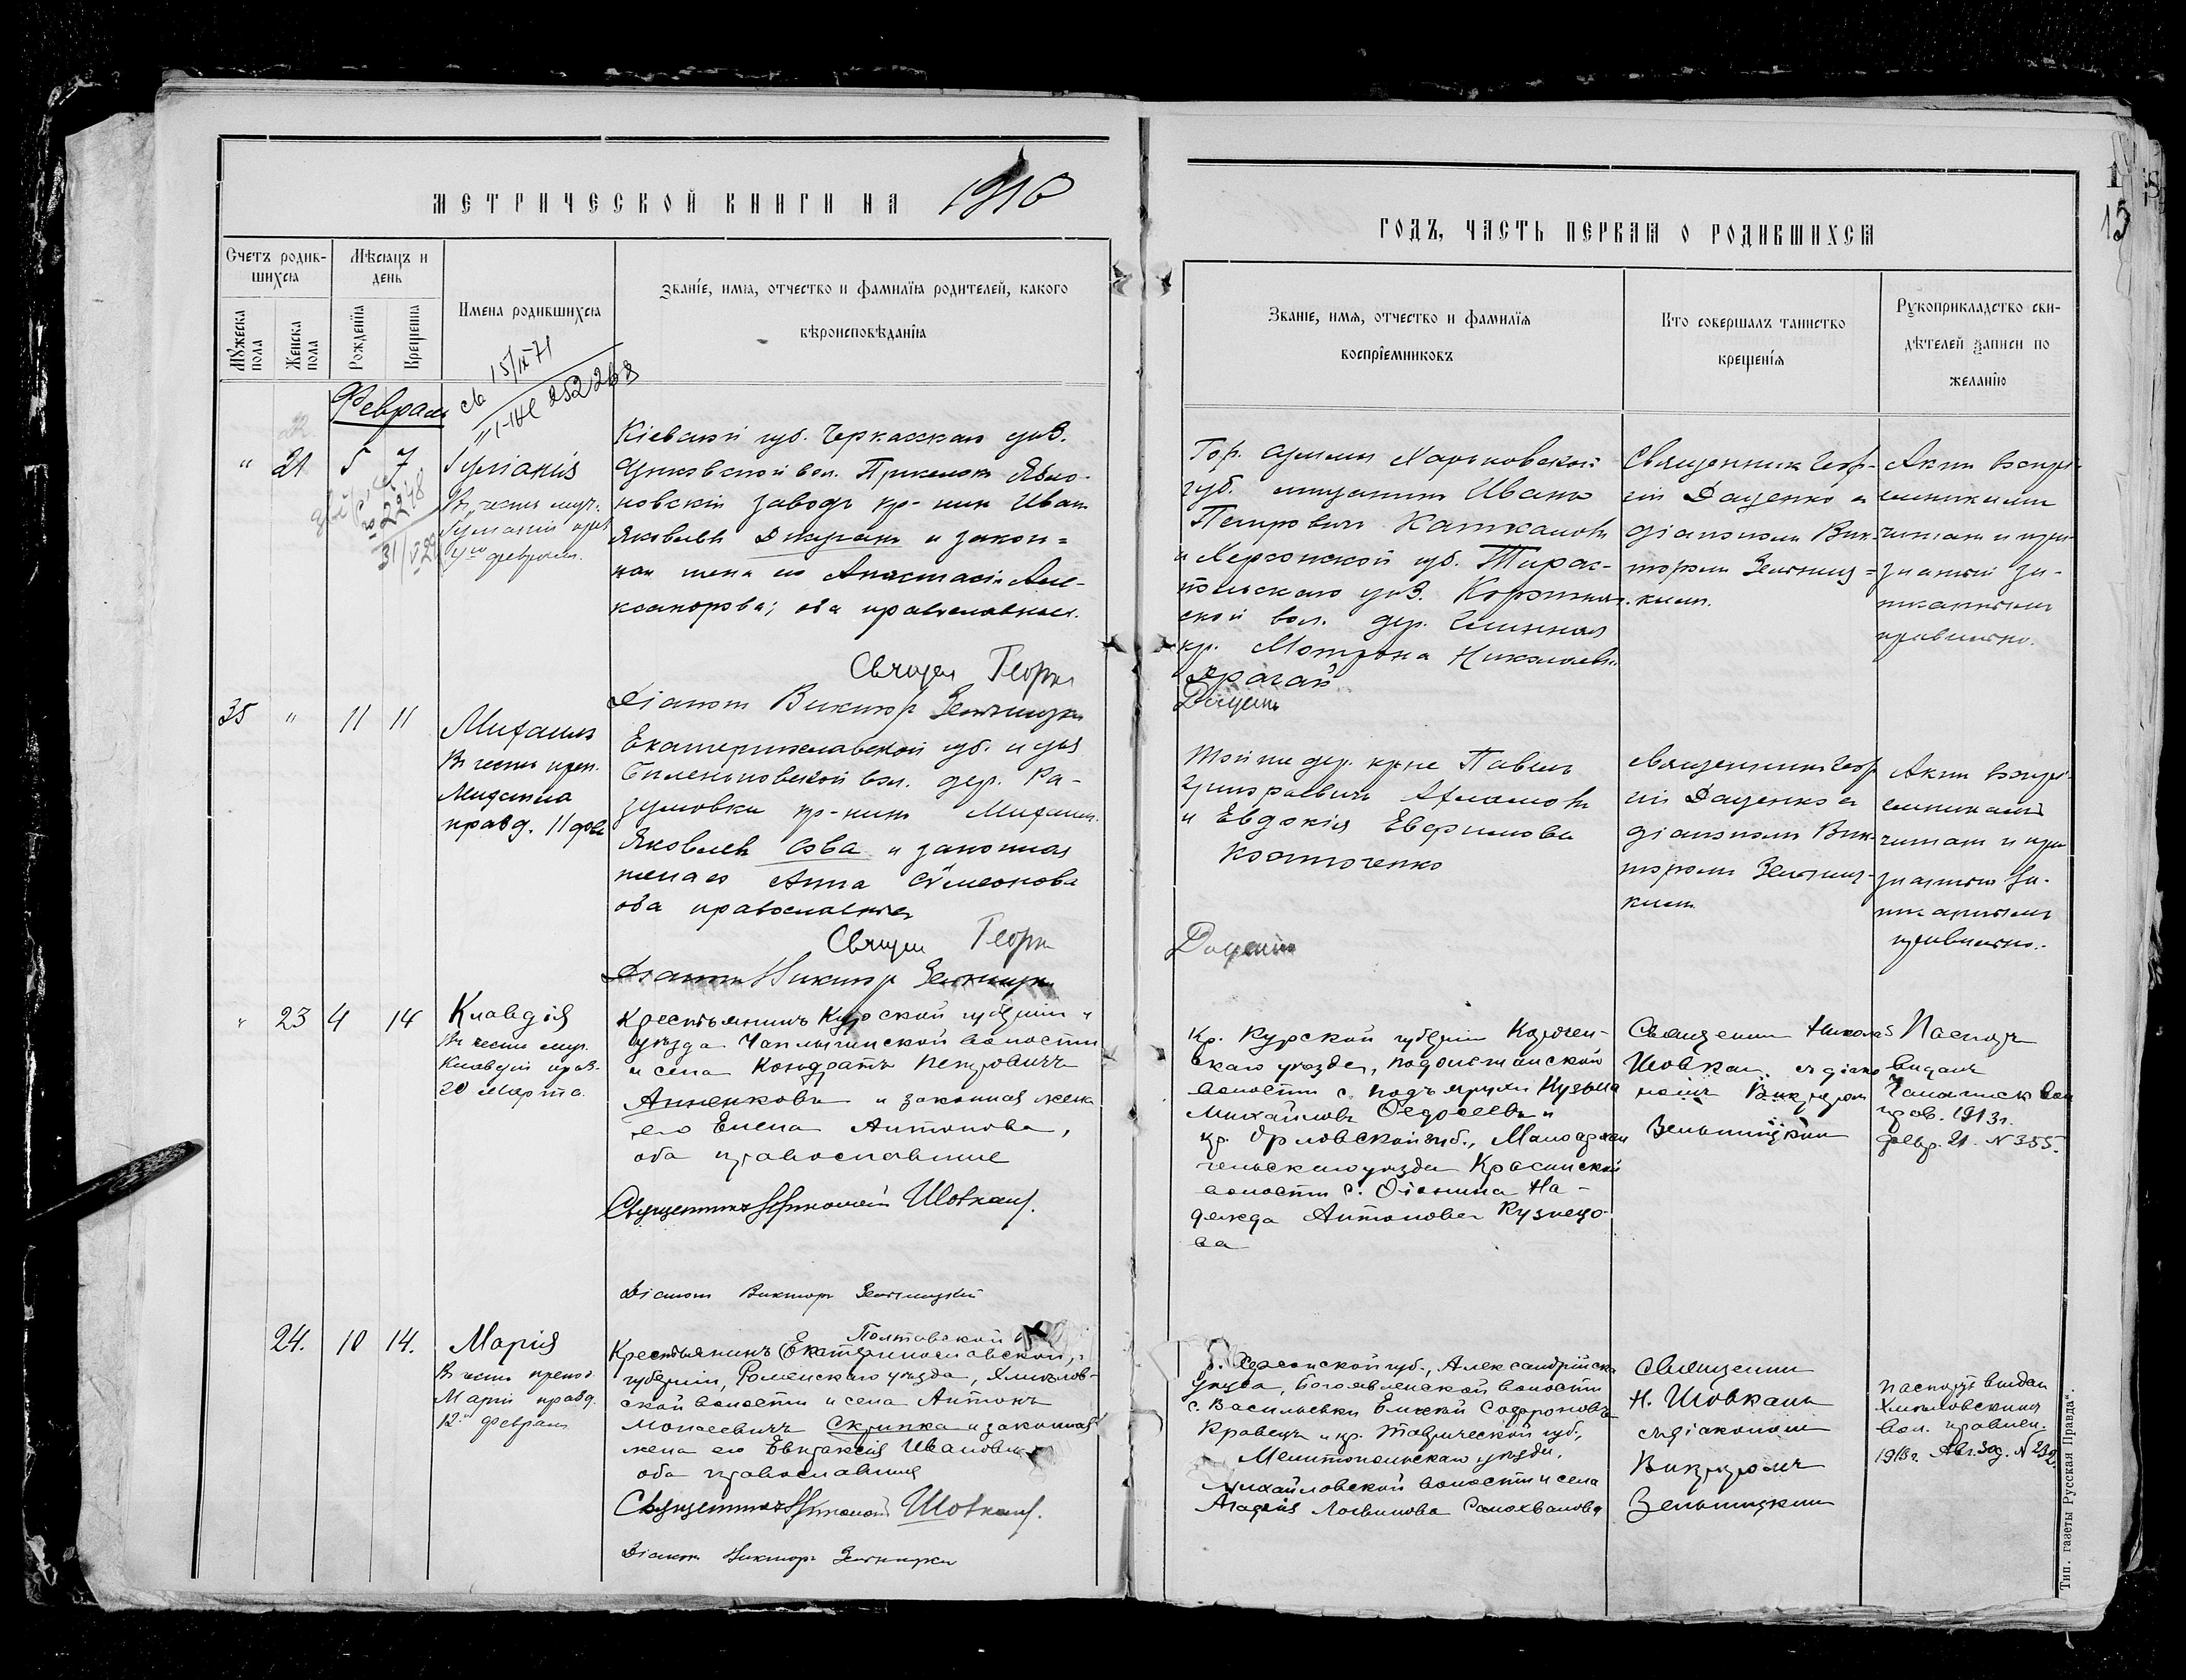 МЕТРИЧЕСКОЙ КНИГИ НА 1916
ГОДЪ, ЧАСТЬ ПЕРВАЯ О РОДИВШИХСЯ
15
Счетъ родив-
шихся
Мѣсяцъ и
день
Мужеска
пола
Женска
пола
Рожденія
Крещенія
Имена родившихся
Званіе, имя, отчество и фамилія родителей, какого
вѣроисповѣданія
Званіе, имя, отчество и фамилія
воспріемниковъ
Кто совершалъ таинство
крещенія
Рукоприкладство сви-
дѣтелей записи по
желанію
св 15/IX 71
252268
Февраль
" 21 5 7
Іуліанія
Въ честь муч.
Іуліаніи
4го февраля.
Кіевской губ. Черкасскаго уѣз.
вол. Ябло-
новскій заводъ кр-нин Иван
Яковлевъ и закон=
ная жена его Анастасія Але-
ксандрова; оба православные.
Священ Георгій
Діаконъ Викторъ Зельницкій
Гор. Сумы Харьковской
губ. мѣщанинъ Иванъ
Петровичъ
и Херсонской губ. Тирас-
польскаго уѣз.
ской вол. дер. Глинная
кр. Мотрона Николаевн.
Драган
Даценко
Священник Геор-
гій Даценко и
діакономъ Вик-
торомъ Зельниц=
кимъ.
Актъ воспрі-
емниками
читанъ и при-
знанный за-
писаннымъ
правильно.
35 " 11 11
Михаилъ
Въ честь преп.
Михаила
празд. 11 фев
Екатеринославской губ. и уѣз
Биленьковской вол. дер. Ра-
зумовки кр-нинъ Михаил.
Яковлев Сова и законная
жена ео Анна Сѵмеонова
оба православные
Священ Георгій
Діаконъ Викторъ Зельницкій
Той же дер. кр-не Павелъ
Григорьевичъ
и Евдокія Евфимова
Костюченко
Даценко
Священникъ Геор
гій Даценко и
діакономъ Вик-
торомъ Зельниц-
кимъ
Актъ воспрі-
емниками
читанъ и при
знанный за-
писаннымъ
правильно.
" 23 4 14
Клавдія
Въ честь муч.
Клавдіи праз.
20 Марта.
Крестьянинъ Курской губерніи и
уѣзда Чаплыгинской волости
и села Кондратъ Петровичъ
Анненковъ и законная жена
его Елена Антонова,
оба православные
Священникъ Николай Шовкань.
Діаконъ Викторъ Зельницкій
Кр. Курской губерніи Корочан-
скаго уѣзда, Подольшанской
волости с. Подъяруги Кузьма
Михайловъ Федосеевъ и
кр. Орловской губ., Малоархан
гельскаго уѣзда Красинской
волости с. На-
дежда Антонова Кузнецо-
ва
Священник Николай
Шовкань съ діако
номъ Викторомъ
Зельницкимъ
Паспортъ
выданъ
вол
прав. 1913г.
февр. 21. № 355.
24. 10 14.
Марія
Въ честь препод.
Маріи празд.
12 Февраля
Полтавской
Крестьянинъ (Екатеринославской,
губерніи, Роменскаго уѣзда, Хмѣлов-
ской волости и села Антонъ
Моисеевичъ Скрипка и законная
жена его Евдокія Иванова
оба православные
Священникъ Николай Шовкань.
Діаконъ Викторъ Зельницкій
Херсонской губ., Александрійска
уѣзда, Богоявленской волости
с. Васильевки Елисей Софроновъ
Кравецъ и кр. Таврической губ.,
Мелитопольскаго уѣзда,
Михайловской волости и села
Агафія Логвинова Самохвалова
Священник
Н. Шовкань
съ діакономъ
Викторомъ
Зельницкимъ
Паспортъ выдан
Хмѣловскимъ
вол. правлен.
1913г. Авг. 30д. № 232.
Тип. газеты „Русская Правда“.